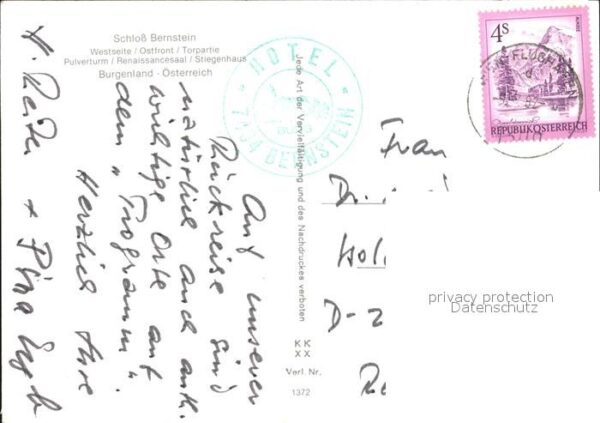 Schloß Bernstein
Westseite / Ostfront / Torpartie
Pulverturm / Renaissancesaal / Stiegenhaus
Burgenland - Österreich
HOTEL
BURG
7434 BERNSTEIN
Jede Art der Vervielfältigung und des Nachdruckes verboten
4S
ALMSEE
REPUBLIK ÖSTERREICH
FLUGHAFEN
Auf unserer
Rückreise sind
natürlich auch
wichtige Orte auf
dem "Programm".
Herzlich Ihre
H. +
Frau
D
Hol
D-2
privacy protection
Datenschutz
KK
XX
Verl. Nr.
1372